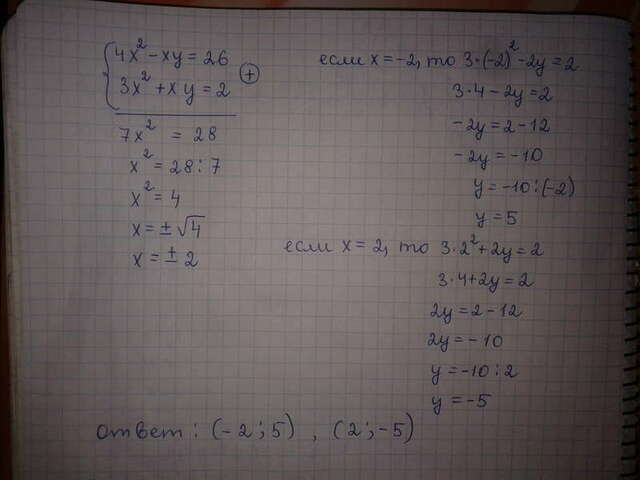 4x² - xy = 26
3x² + xy = 2 (+)
7x² = 28
x² = 28 : 7
x² = 4
x = ± √4
x = ± 2
если x = -2, то 3·(-2)² - 2y = 2
3·4 - 2y = 2
-2y = 2 - 12
-2y = -10
y = -10 : (-2)
y = 5
если x = 2, то 3·2² + 2y = 2
3·4 + 2y = 2
2y = 2 - 12
2y = -10
y = -10 : 2
y = -5
ответ : (-2 ; 5) , (2 ; -5)